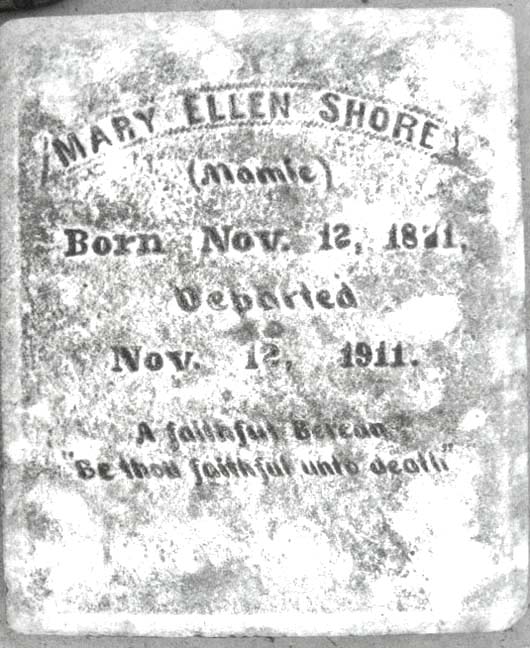 MARY ELLEN SHORE
(Mamie)
Born Nov. 12,
Departed
Nov. 12, 1911.
A faithful Berean
"Be thou faithful unto death"